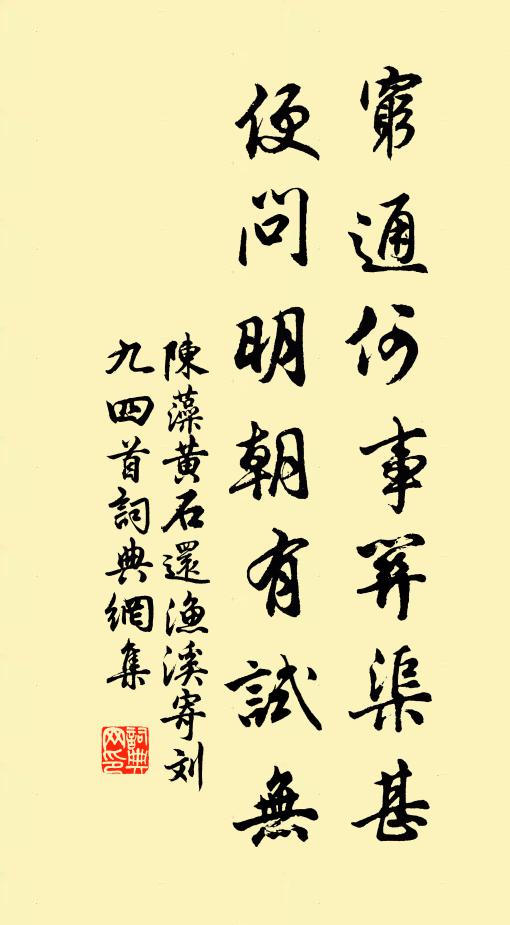 窮通何事關渠甚
便問明朝有試無
陳藻黄石還漁溪寄刘
九四首詞典網集
詞典網印